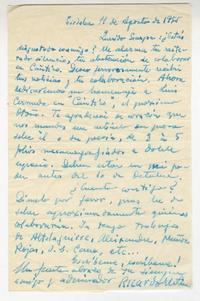 Córdoba 11 de Agosto de 1961
Querido             : ¿Estás
disgustado conmigo? Me alarma tu reite-
rado silencio, tu abstención de colaborar
en Cántico. Deseo fervorosamente recibir
tus noticias y tu colaboración. Ahora
dedicaremos un homenaje a Luis
Cernuda en "Cántico", el próximo
Otoño. Te agradecería
nos mandes un artículo en prosa
de él o su poesía, de 3 a 5
folios mecanografiados a doble
espacio. Deben estar en mi po-
der antes del 10 de Octubre.
¿Cuento contigo?
Dímelo por favor, pues he de
saber aproximadamente quiénes
colaborarán. Ya tengo trabajos
de Altolaguirre, Aleixandre, Muñoz
Rojas, J. L. Cano, etc...
Escríbeme, escríbeme!
Un fuerte abrazo de tu siempre
amigo y admirador Ricardo Molina